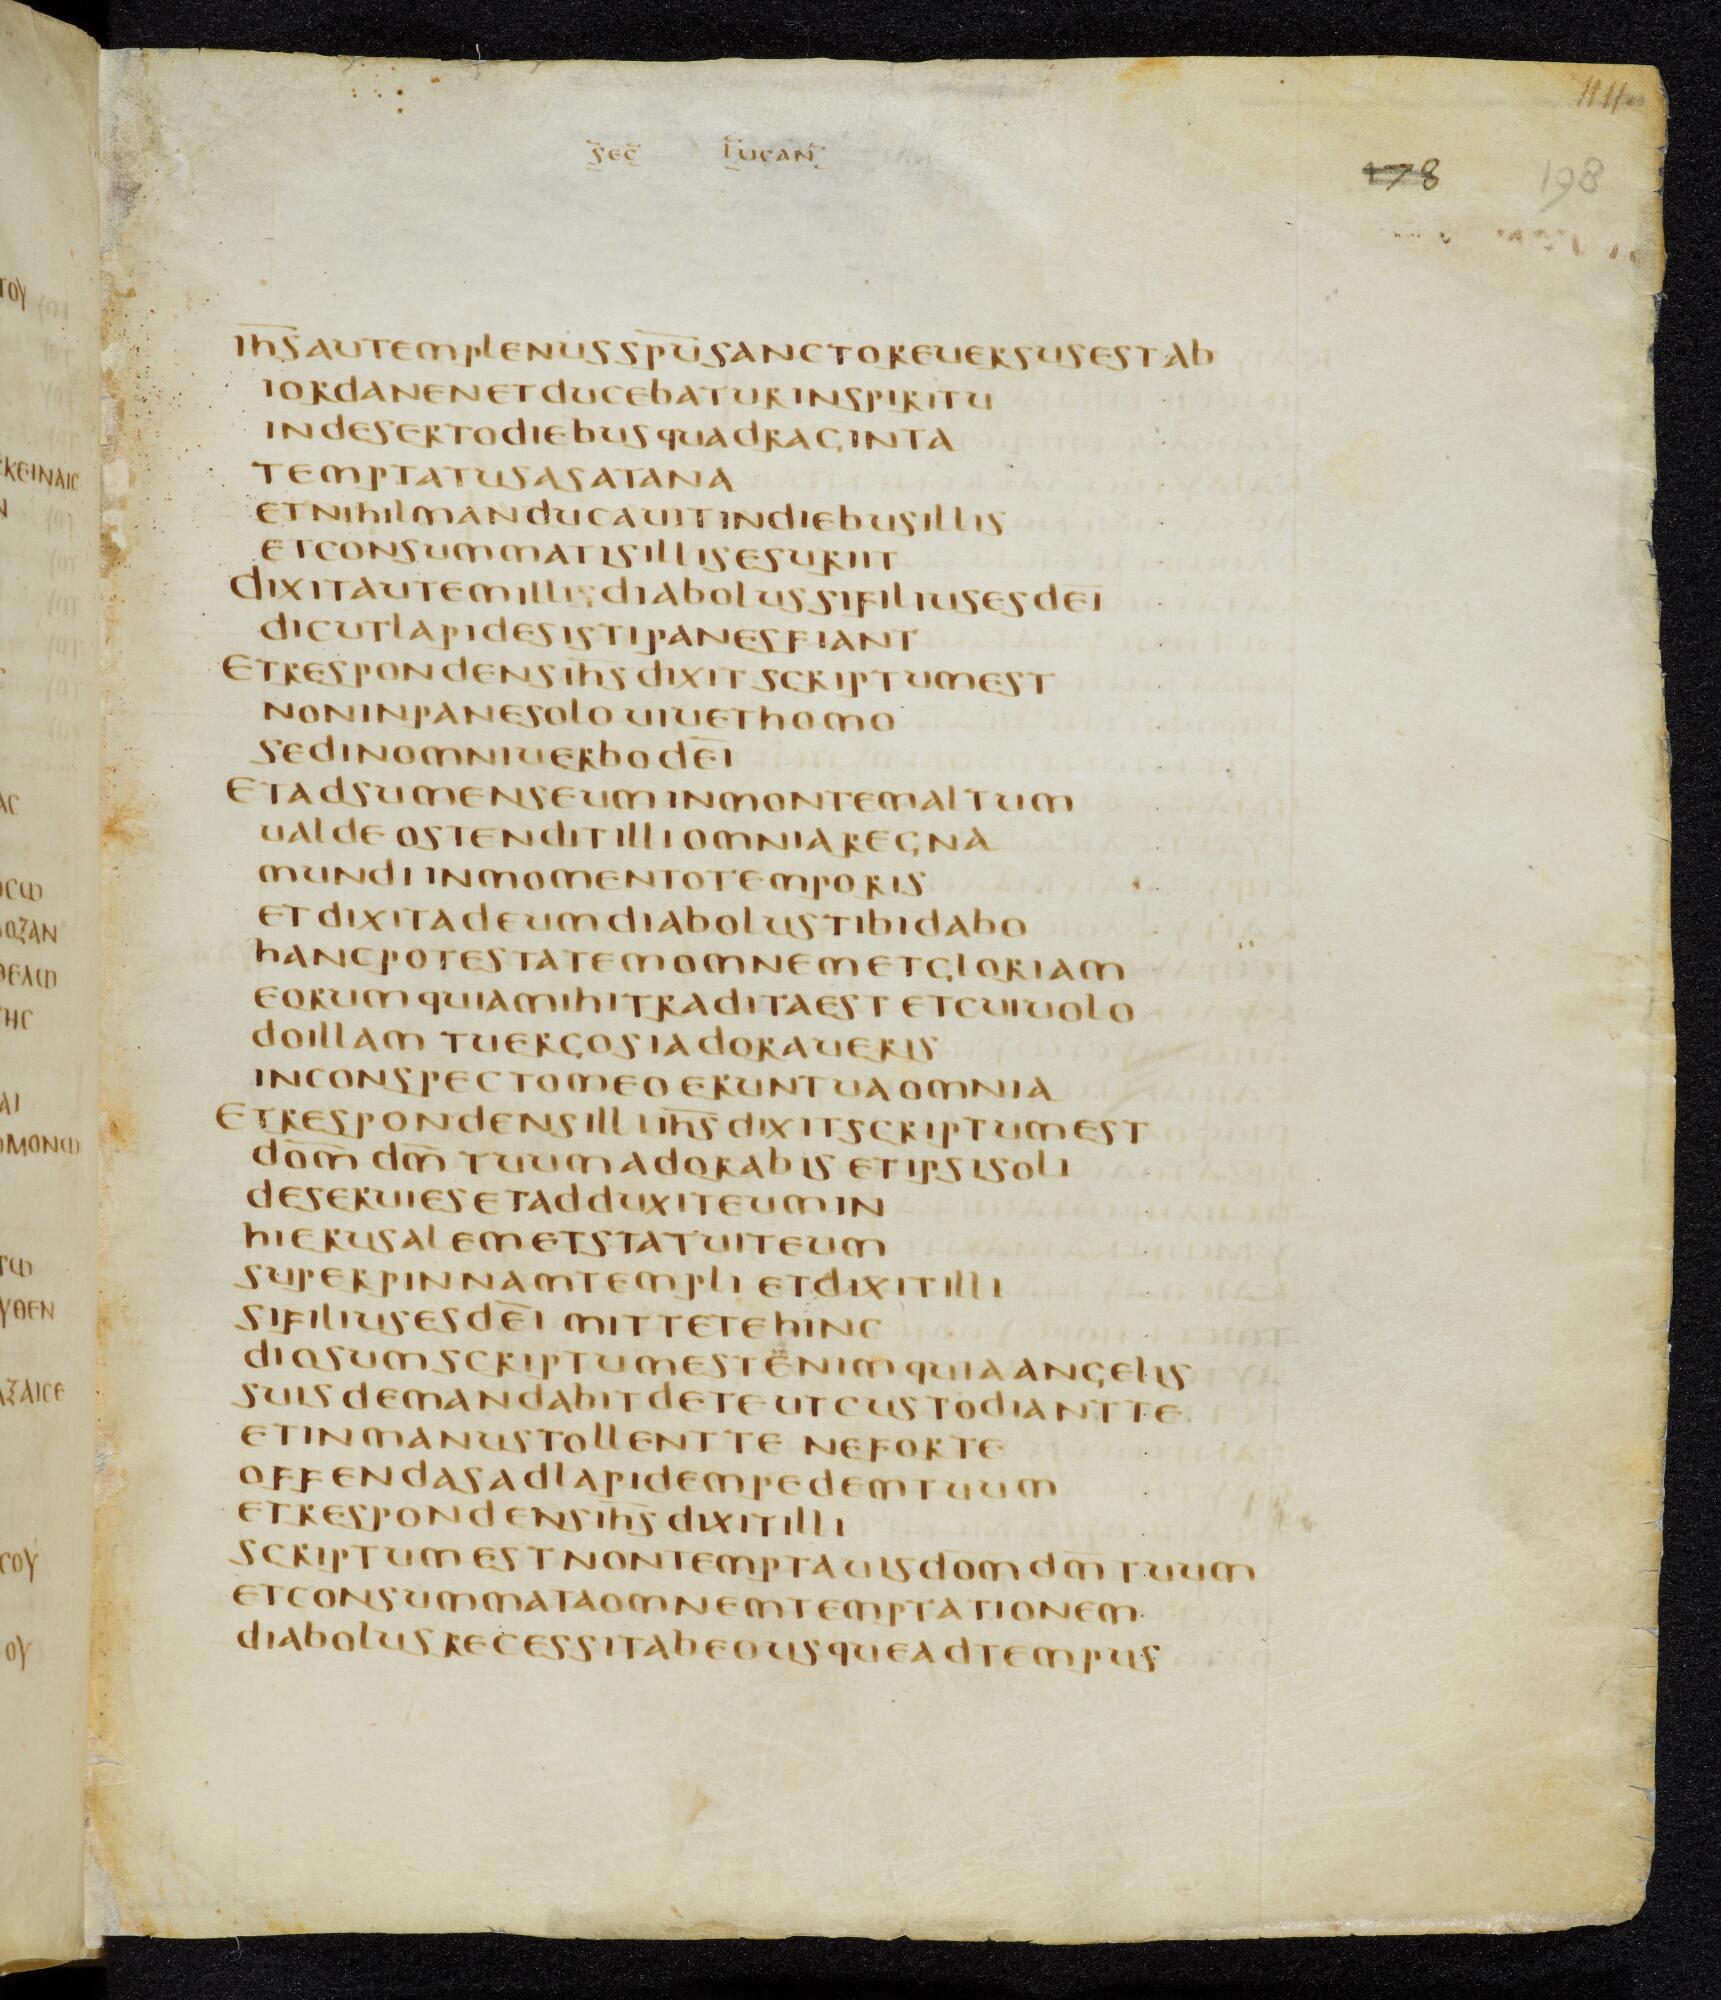 sec lucan
178 198
ihs autem plenus spu sancto reuersus est ab
iordanen et ducebatur in spiritu
in deserto diebus quadraginta
temptatus a satana
et nihil manducauit in diebus illis
et consummatis illis esuriit
dixit autem illis diabolus si filius es dei
dic ut lapides isti panes fiant
et respondens ihs dixit scriptum est
non in pane solo uiuet homo
sed in omni uerbo dei
et adsumens eum in montem altum
ualde ostendit illi omnia regna
mundi in momento temporis
et dixit ad eum diabolus tibi dabo
hanc potestatem omnem et gloriam
eorum quia mihi tradita est et cui uolo
do illam tu ergo si adoraueris
in conspecto meo erunt tua omnia
et respondens illi ihs dixit scriptum est
dom dm tuum adorabis et ipsi soli
deseruies et adduxit eum in
hierusalem et statuit eum
super pinnam templi et dixit illi
si filius es dei mitte te hinc
diosum scriptum est enim quia angelis
suis demandabit de te ut custodiant te
et in manus tollent te ne forte
offendas ad lapidem pedem tuum
et respondens ihs dixit illi
scriptum est non temptauis dom dm tuum
et consummata omnem temptationem
diabolus recessit ab eo usque ad tempus